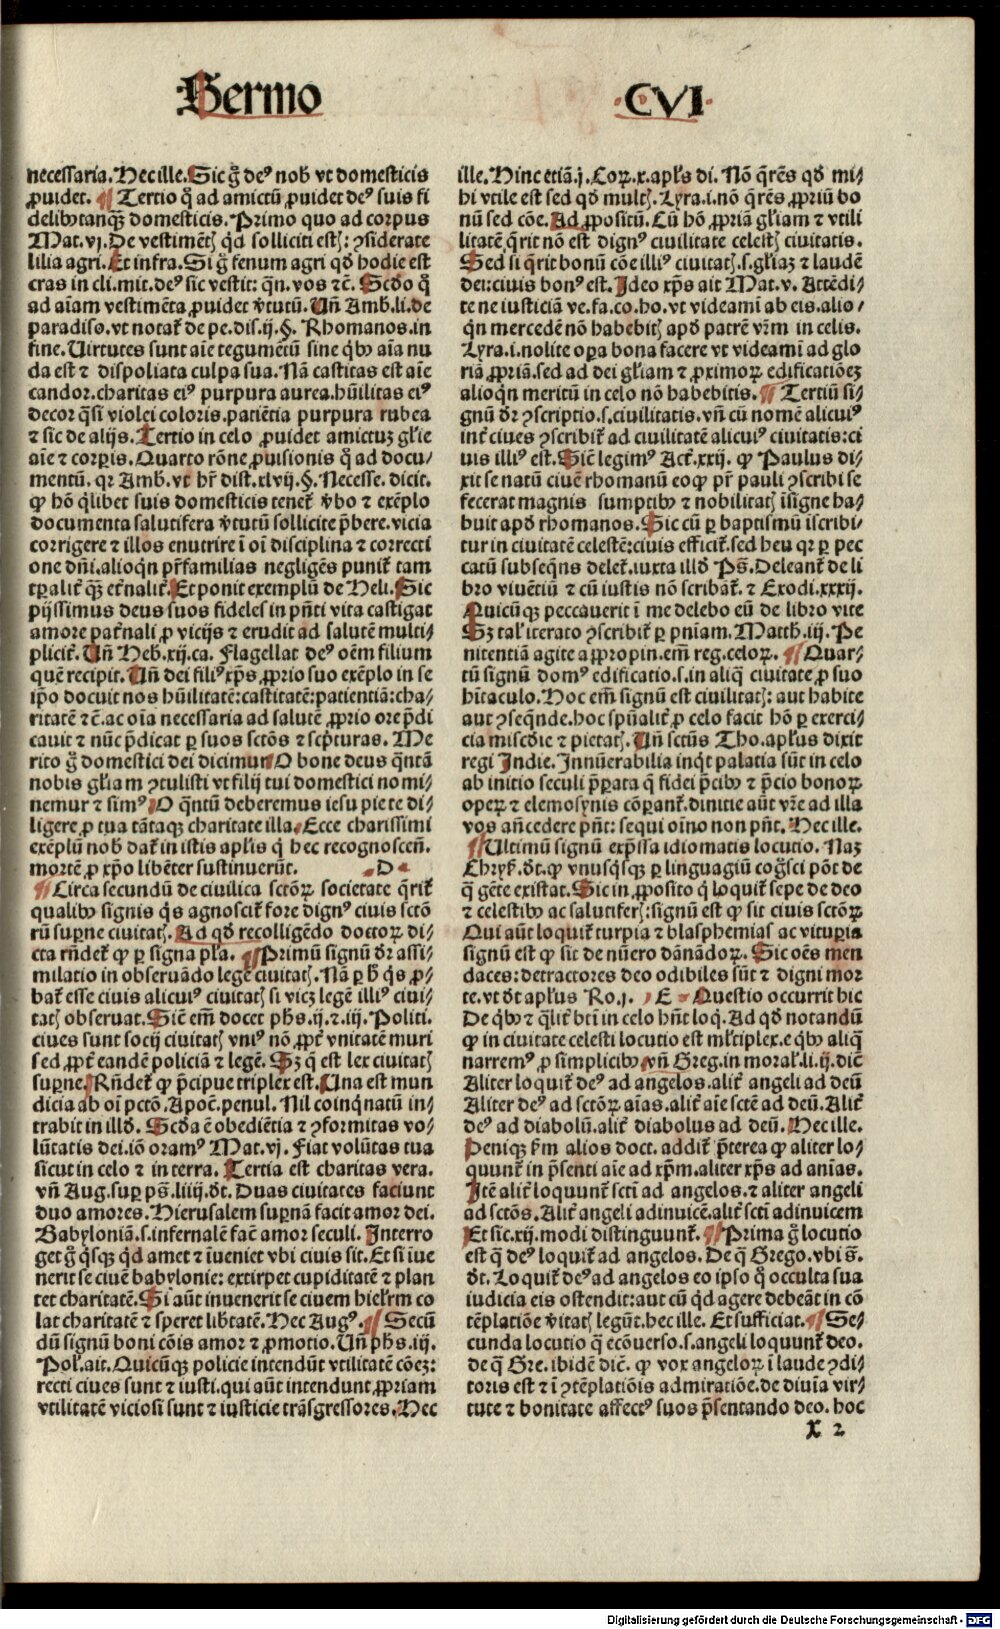 Sermo
CVI
necessaria. Hec ille. Sic g̃ deꝰ nob̃ vt domesticis
ꝓuidet. ¶ Tertio q̃ ad amictũ ꝓuidet deꝰ suis fi
delibꝫ tanqꝫ domesticis. Primo quo ad corpus
Mat. vj. De vestimẽtꝭ qd̃ solliciti estꝭ: ꝯsiderate
lilia agri. Et infra. Si g̃ fenum agri qd̃ hodie est
cras in cli. mit. deꝰ sic vestit: qñ. vos ⁊c̃. Scd̃o q̃
ad aĩam vestimẽta ꝓuidet ṽtutũ. Uñ Amb. li. de
paradiso. vt notat̃ de pe. dis. ij. §. Rhomanos. in
fine. Uirtutes sunt aĩe tegumẽtũ sine qbꝫ aĩa nu
da est ⁊ dispoliata culpa sua. Nã castitas est aĩe
candor. charitas eiꝰ purpura aurea. hũilitas eiꝰ
decor qsi violei coloris. patiẽtia purpura rubea
⁊ sic de alijs. Tertio in celo ꝓuidet amictuꝫ gl̃ie
aĩe ⁊ corꝑis. Quarto rõne ꝓuisionis q̃ ad docu/
mentũ. qꝛ Amb. vt hr̃ dist. xlvij. §. Necesse. dicit.
ꝙ hõ qlibet suis domesticis tenet̃ ṽbo ⁊ exẽplo
documenta salutifera ṽtutũ sollicite p̃bere. vicia
corrigere ⁊ illos enutrire ĩ oĩ disciplina ⁊ correcti
one dñi. alioqñ pr̃familias negligẽs punit̃ tam
tꝑalit̃ qꝫ et̃nalit̃. Et ponit exemplũ de Heli. Sic
pijssimus deus suos fideles in pñti vita castigat
amore pat̃nali ꝓ vicijs ⁊ erudit ad salutẽ multi/
plicit̃. Uñ Heb. xij. ca. Flagellat deꝰ oẽm filium
quẽ recipit. Uñ dei filiꝰ xp̃s ꝓprio suo exẽplo in se
ip̃o docuit nos hũilitatẽ: castitatẽ: patientiã: cha/
ritatẽ ⁊c̃. ac oĩa necessaria ad salutẽ ꝓprio ore p̃di
cauit ⁊ nũc p̃dicat ꝑ suos sctõs ⁊ scp̃turas. Me
rito g̃ domestici dei dicimur. O bone deus qntã
nobis gl̃iam ꝯtulisti vt filij tui domestici nomi/
nemur ⁊ simꝰ. O qntũ deberemus iesu pie te di/
ligere ꝓ tua tãtaqꝫ charitate illa. Ecce charissimi
exẽplũ nob̃ dat̃ in istis apl̃is q̃ hec recognosceñ.
mortẽ ꝓ xp̃o libẽter sustinuerũt. .D.
¶ Circa secundũ de ciuilica sctõꝝ societate qrit̃
qualibꝫ signis qs agnoscit̃ fore dignꝰ ciuis sctõ
rũ suꝑne ciuitatꝭ. Ad qd̃ recolligẽdo doctoꝝ di/
cta rñdet̃ ꝙ ꝑ signa pl̃a. ¶ Primũ signũ dr̃ assi/
milatio in obseruãdo legẽ ciuitatꝭ. Nã ꝑ h̃ qs ꝓ/
bat̃ esse ciuis alicuiꝰ ciuitatꝭ si vicꝫ legẽ illiꝰ ciui/
tatꝭ obseruat. Sic̃ em̃ docet ph̃s. ij. ⁊. iij. Politi.
ciues sunt socij ciuitatꝭ vniꝰ nõ ꝓpt̃ vnitatẽ muri
sed ꝓpt̃ eandẽ policiã ⁊ legẽ. Sꝫ q̃ est lex ciuitatꝭ
suꝑne. Rñdet̃ ꝙ p̃cipue triplex est. Una est mun
dicia ab oĩ pctõ. Apoc̃. penul. Nil coinqnatũ in/
trabit in illd̃. Scd̃a ẽ obediẽtia ⁊ ꝯformitas vo/
lũtatis dei. iõ oramꝰ Mat. vj. Fiat volũtas tua
sicut in celo ⁊ in terra. Tertia est charitas vera.
vñ Aug. suꝑ ps̃. liiij. dt̃. Duas ciuitates faciunt
duo amores. Hierusalem suꝑnã facit amor dei.
Babyloniã. s. infernalẽ fac̃ amor seculi. Interro
get g̃ qsqꝫ qd̃ amet ⁊ ĩueniet vbi ciuis sit. Et si ĩue
nerit se ciuẽ babylonie: extirpet cupiditatẽ ⁊ plan
tet charitatẽ. Si aũt inuenerit se ciuem hiel̃rm co
lat charitatẽ ⁊ speret lib̃tatẽ. Hec Augꝰ. ¶ Secũ
dũ signũ boni cõis amor ⁊ ꝓmotio. Uñ ph̃s. iij.
Pol̃. ait. Quicũqꝫ policie intendũt vtilitatẽ cõeꝫ:
recti ciues sunt ⁊ iusti. qui aũt intendunt ꝓpriam
vtilitatẽ viciosi sunt ⁊ iusticie trãsgressores. Hec
ille. Hinc etiã. j. Coꝝ. x. apl̃s di. Nõ qrẽs qd̃ mi/
hi vtile est sed qd̃ multꝭ. Lyra. i. nõ qrẽs ꝓpriũ bo
nũ sed cõe. Ad ꝓpositũ. Cũ hõ ꝓpriã gl̃iam ⁊ vtili
litatẽ qrit nõ est dignꝰ ciuilitate celestꝭ ciuitatis.
Sed si qrit bonũ cõe illiꝰ ciuitatꝭ. s. gl̃iaꝫ ⁊ laudẽ
dei: ciuis bonꝰ est. Ideo xp̃s ait Mat. v. Attẽdi/
te ne iusticiã ve. fa. co. ho. vt videamĩ ab eis. alio/
qñ mercedẽ nõ habebitꝭ apd̃ patrẽ vr̃m in celis.
Lyra. i. nolite oꝑa bona facere vt videamĩ ad glo
riã ꝓpriã. sed ad dei gl̃iam ⁊ ꝓximoꝝ edificationẽꝫ
alioqñ meritũ in celo nõ habebitis. ¶ Tertiũ si/
gnũ dr̃ ꝯscriptio. s. ciuilitatis. vñ cũ nomẽ alicuiꝰ
int̃ ciues ꝯscribit̃ ad ciuilitatẽ alicuiꝰ ciuitatis: ci
uis illiꝰ est. Sic̃ legimꝰ Act̃. xxij. ꝙ Paulus di/
xit se natũ ciuẽ rhomanũ eo ꝙ pr̃ pauli ꝯscribi se
fecerat magnis sumptibꝫ ⁊ nobilitatꝭ ĩsigne ha/
buit apd̃ rhomanos. Sic cũ ꝑ baptismũ ĩscribi/
tur in ciuitatẽ celestẽ: ciuis efficit̃. sed heu qꝛ ꝑ pec
catũ subseqñs delet̃. iuxta illd̃ Ps̃. Deleant̃ de li
bro viuẽtiũ ⁊ cũ iustis nõ scribãt̃. ⁊ Exodi. xxxij.
Quicũqꝫ peccauerit ĩ me delebo eũ de libro vite
Sꝫ tal̃ iterato ꝯscribit̃ ꝑ pniam. Matth. iij. Pe
nitentiã agite appropin. em̃ reg. celoꝝ. ¶ Quar/
tũ signũ domꝰ edificatio. s. in aliq̃ ciuitate ꝓ suo
hĩtaculo. Hoc em̃ signũ est ciuilitatꝭ: aut habite
aut ꝯseqnde. hoc spũalit̃ ꝓ celo facit hõ ꝑ exerci/
cia misc̃die ⁊ pietatꝭ. Uñ sctũs Tho. apl̃us dixit
regi Indie. Innũerabilia inqt palatia sũt in celo
ab initio seculi p̃parata q̃ fidei p̃cibꝫ ⁊ p̃cio bonoꝝ
opeꝝ ⁊ elemosynis cõꝑant̃. diuitie aũt vr̃e ad illa
vos añcedere pñt: sequi oĩno non pñt. Hec ille.
¶ Ultimũ signũ exp̃ssa idiomatis locutio. Naꝫ
Chrys̃. dt̃. ꝙ vnusqsqꝫ ꝑ linguagiũ cog̃sci põt de
q̃ gẽte existat. Sic in ꝓposito q̃ loquit̃ sepe de deo
⁊ celestibꝫ ac salutiferꝭ: signũ est ꝙ sit ciuis sctõꝝ
Qui aũt loquit̃ turpia ⁊ blasphemias ac vituꝑia
signũ est ꝙ sit de nũero dãnãdoꝝ. Sic oẽs men
daces: detractores deo odibiles sũt ⁊ digni mor
te. vt dt̃ apl̃us Ro. j. .E. Questio occurrit hic
De qbꝫ ⁊ qlit̃ btĩ in celo hñt loq. Ad qd̃ notandũ
ꝙ in ciuitate celesti locutio est ml̃tiplex. e qbꝫ aliq̃
narremꝰ ꝓ simplicibꝫ. vñ Greg. in moral̃. li. ij. dic̃
Aliter loquit̃ deꝰ ad angelos. alit̃ angeli ad deũ
Aliter deꝰ ad sctõꝝ aĩas. alit̃ aĩe sctẽ ad deũ. Alit̃
deꝰ ad diabolũ. alit̃ diabolus ad deũ. Hec ille.
Deniqꝫ fm̃ alios doct. addit̃ p̃terea ꝙ aliter lo/
quunt̃ in p̃senti aĩe ad xp̃m. aliter xp̃s ad aĩas.
Itẽ alit̃ loquunt̃ sctĩ ad angelos. ⁊ aliter angeli
ad sctõs. Alit̃ angeli adinuicẽ. alit̃ sctĩ adinuicem
Et sic. xij. modi distinguunt̃. ¶ Prima g̃ locutio
est q̃ deꝰ loquit̃ ad angelos. De q̃ Grego. vbi s̃.
dt̃. Loquit̃ deꝰ ad angelos eo ipso q̃ occulta sua
iudicia eis ostendit: aut cũ qd̃ agere debeãt in cõ
tẽplatiõe ṽitatꝭ legũt. hec ille. Et sufficiat. ¶ Se/
cunda locutio q̃ ecõuerso. s. angeli loquunt̃ deo.
de q̃ Gre. ibidẽ dic̃. ꝙ vox angeloꝝ ĩ laude ꝯdi/
toris est ⁊ ĩ ꝯtẽplatiõis admiratiõe. de diuĩa vir/
tute ⁊ bonitate affectꝰ suos p̃sentando deo. hoc
X 2
Digitalisierung gefördert durch die Deutsche Forschungsgemeinschaft - DFG